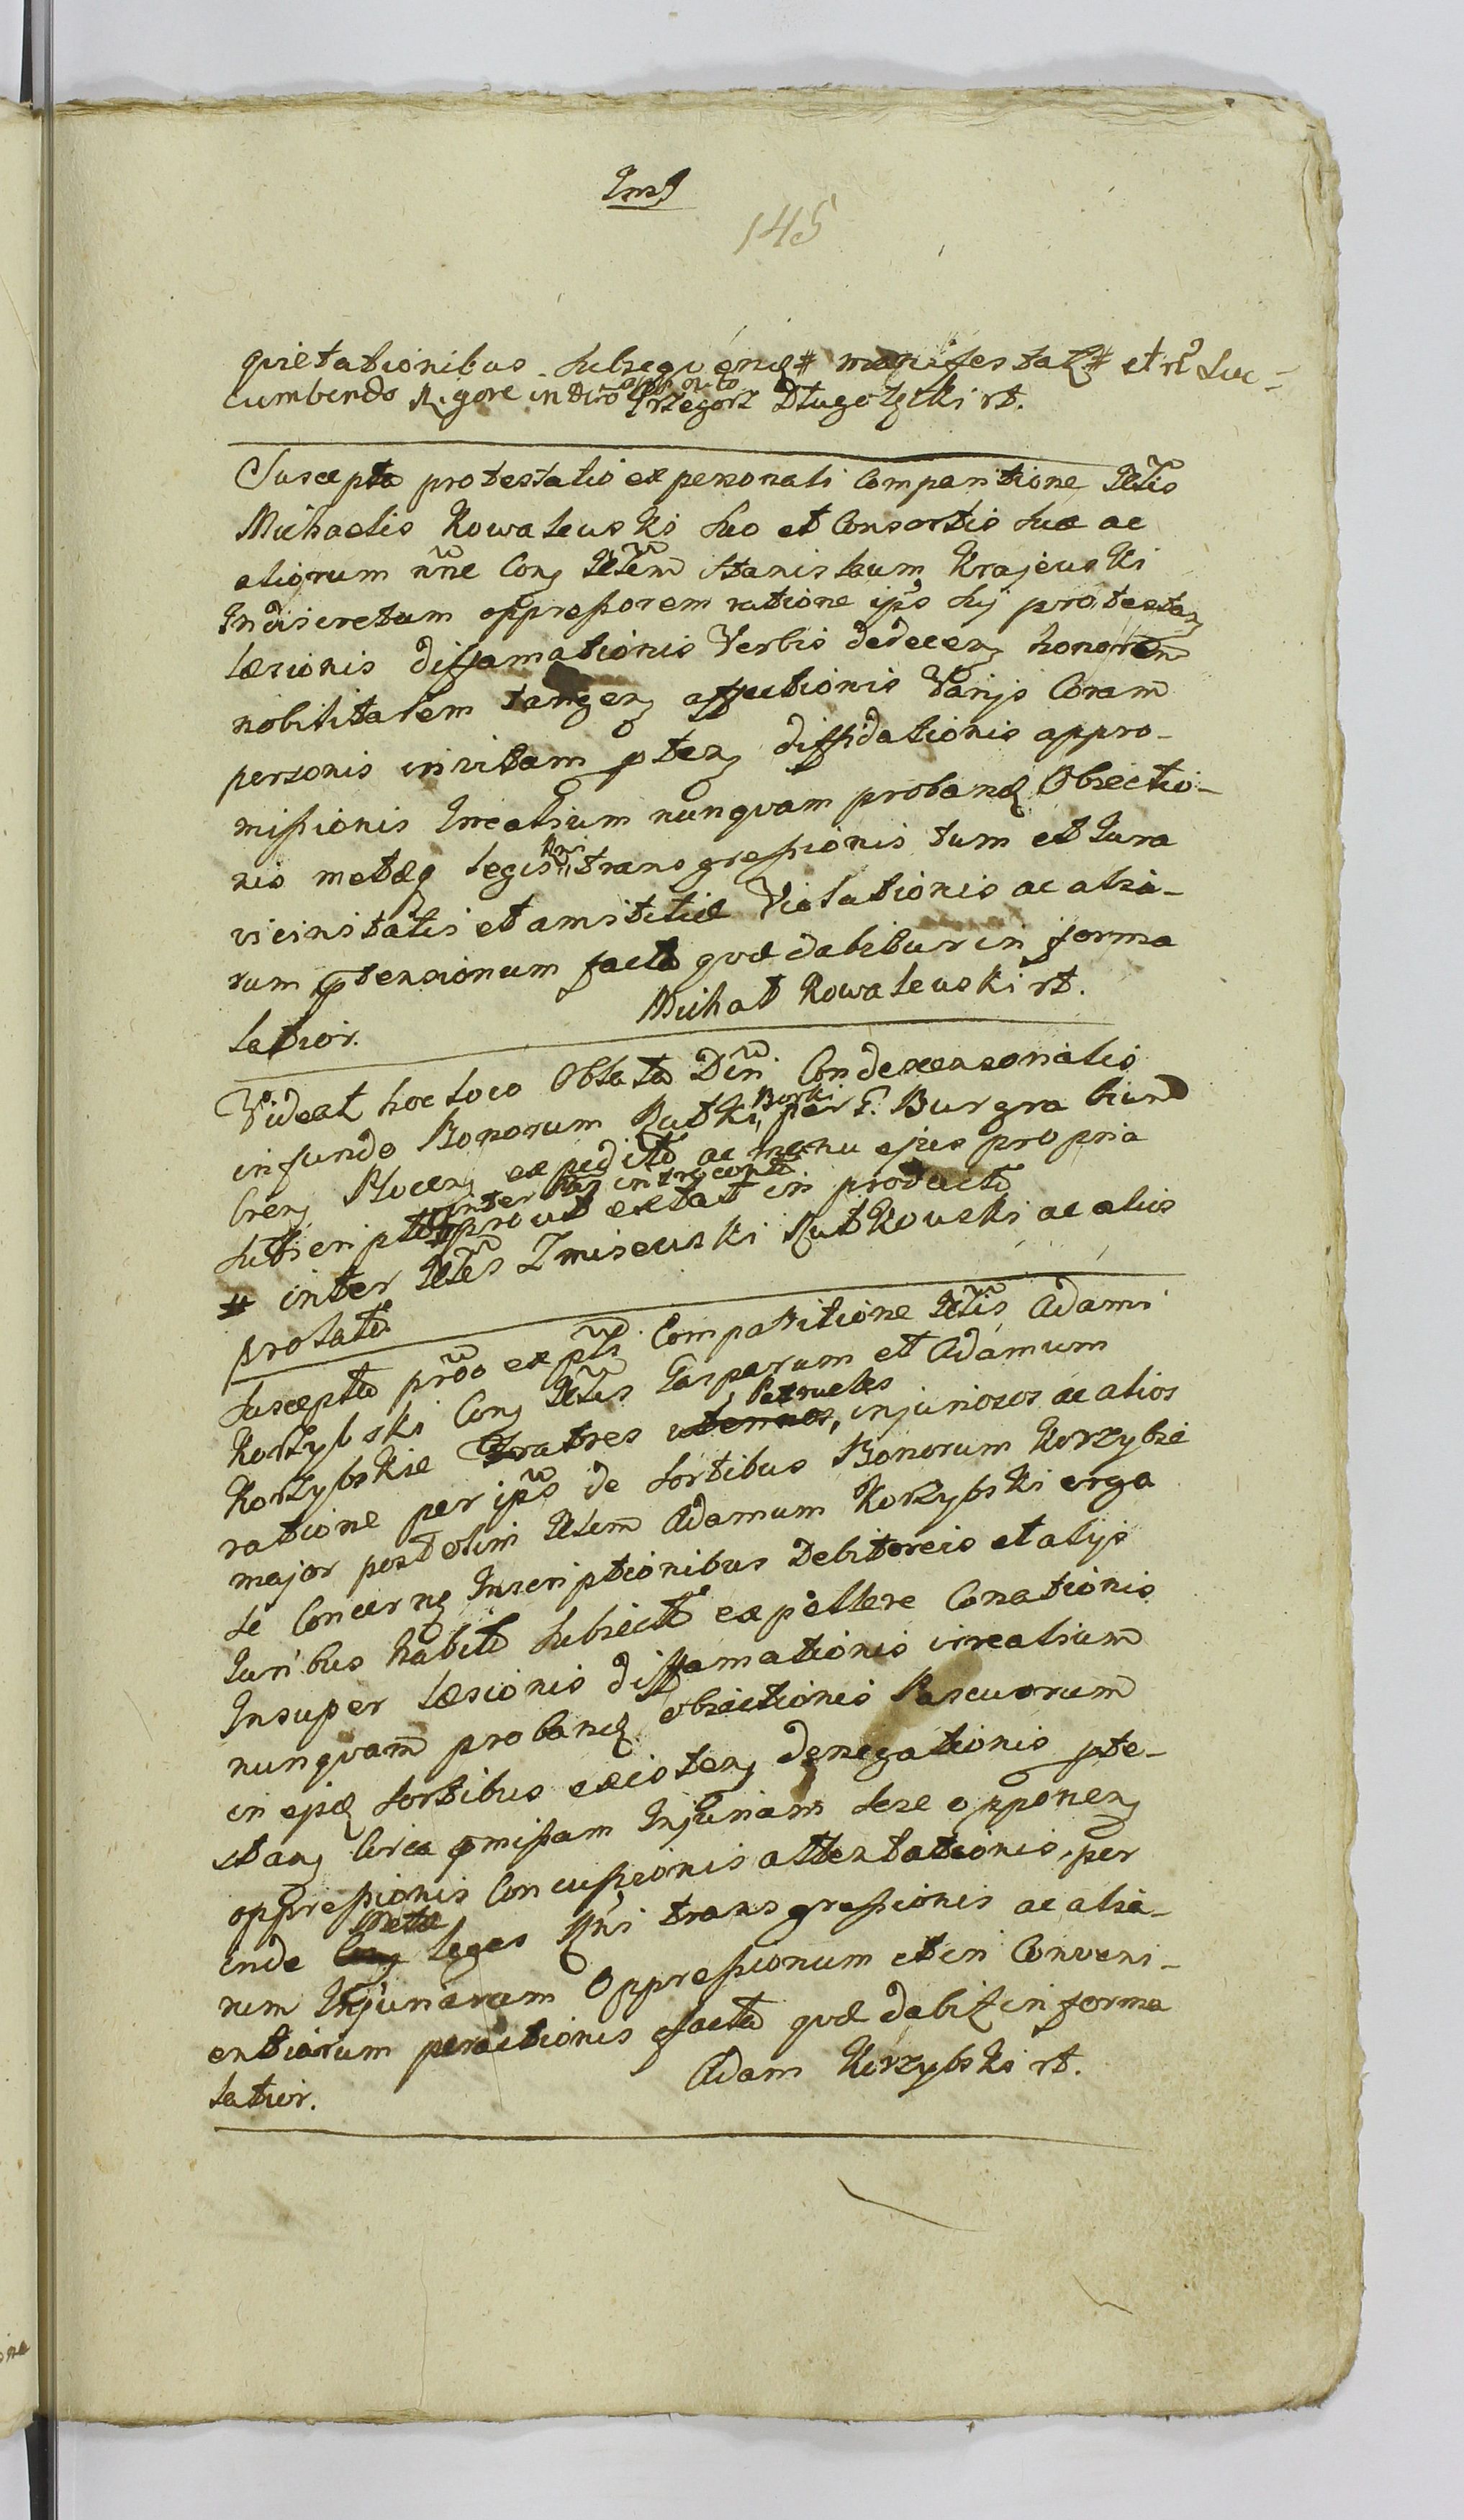 145
quietationibus subsequen # manifestat # et rt suc-
cumbendo Rigore indiro opposito Grzegorz Długołęcki rt.
Suscepta protestatio ex personali Comparitione Gttis
Michaelis Kowalewski suo et Consortis suæ ac
aliorum nne Con Gttem Stanislaum Krajewski
Indiscretum oppressorem ratione ipso sui protestan
læsionis diffamationis Verbis dedecen honorem
nobilitatem tangen affectionis Varijs Coram
personis in vitam pten diffidationis appro-
missionis Irrealium nunquam proband Obiectio-
nis metæq legis Rni transgressionis tum et Jura
vicinitatis et amicitiæ Violationis ac alia-
rum ptensionum facta quæ dabitur in forma
latior. Michał Kowalewski rt.
Videat hoc loco Oblata Din Condescensionalis
in fundo Bonorum Rutki Borki per G. Burgrabium
Cren Plocen expedit ac manu ejus propria
inter has introcont
subscript # prout extat in product
# inter Gttes Zmiiewski Rutkowski ac alios
prolata
Suscepta prõo ex pli Comparitione Gttis Adami
Korzybski Con Gttes Gasparum et Adamum
Korzybskie Fratres Patrueles, injuriosos ac alios
ratione per ipso de sortibus Bonorum Korzybie
major post olim Gttem Adamum Korzybski erga
se Concern Inscriptionibus Debitoreis et alijs
Juribus habit subiect expellere Conationis
Insuper læsionis diffamationis irrealium
nunquam proband obiectionis Pascuorum
in ejsd sortibus existen denegationis pte-
stan Circa pmissam Injuriam sese opponen
oppressionis Concussionis attentationis, per
inde Metæ leges Rni transgressionis ac alia-
rum Injuriarum Oppressionum et in Conveni-
entiarum peractionis facta quæ dabit in forma
latior. Adam Korzybski rt.